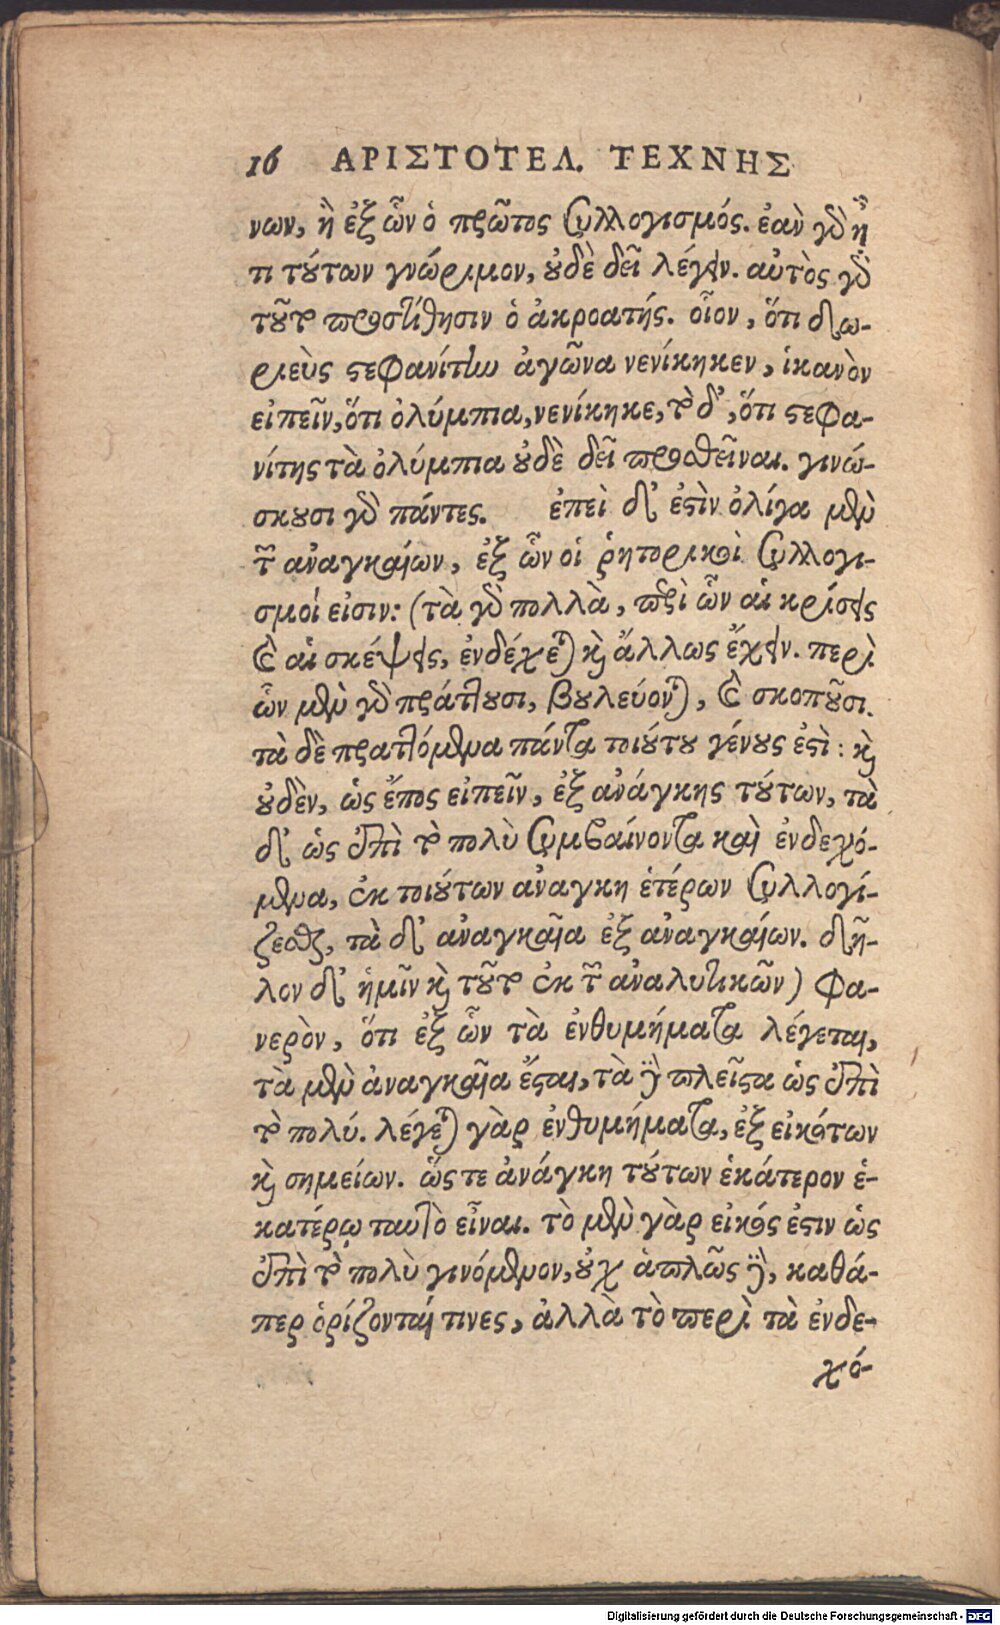 16 ΑΡΙΣΤΟΤΕΛ. ΤΕΧΝΗΣ
νων, ἢ ἐξ ὧν ὁ πρῶτος συλλογισμός. ἐὰν γὸ ᾖ
τι τούτων γνώριμον, οὐδὲ δεῖ λέγειν. αὐτὸς γὸ
τοῦτο προστίθησιν ὁ ἀκροατής. οἷον, ὅτι δω-
ριεὺς στεφανίτην ἀγῶνα νενίκηκεν, ἱκανὸν
εἰπεῖν, ὅτι ὀλύμπια, νενίκηκε, τὸ δ', ὅτι στεφα-
νίτης τὰ ὀλύμπια οὐδὲ δεῖ προσθεῖναι. γινώ-
σκουσι γὸ πάντες. ἐπεὶ δ' ἐστὶν ὀλίγα μὲν
τῶν ἀναγκαίων, ἐξ ὧν οἱ ῥητορικοὶ συλλογι-
σμοί εἰσιν: (τὰ γὸ πολλὰ, περὶ ὧν αἱ κρίσεις
καὶ αἱ σκέψεις, ἐνδέχεται καὶ ἄλλως ἔχειν. περὶ
ὧν μὲν γὸ πράττουσι, βουλεύονται, καὶ σκοποῦσι.
τὰ δὲ πραττόμενα πάντα τοιούτου γένους ἐστὶ: καὶ
οὐδὲν, ὡς ἔπος εἰπεῖν, ἐξ ἀνάγκης τούτων, τὰ
δ' ὡς ἐπὶ τὸ πολὺ συμβαίνοντα καὶ ἐνδεχό-
μενα, ἐκ τοιούτων ἀναγκη ἑτέρων συλλογί-
ζεσθαι, τὰ δ' ἀναγκαῖα ἐξ ἀναγκαίων. δῆ-
λον δ' ἡμῖν καὶ τοῦτο ἐκ τῶν ἀναλυτικῶν) φα-
νερὸν, ὅτι ἐξ ὧν τὰ ἐνθυμήματα λέγεται,
τὰ μὲν ἀναγκαῖα ἔσται, τὰ δὲ πλεῖστα ὡς ἐπὶ
τὸ πολύ. λέγεται γὰρ ἐνθυμήματα, ἐξ εἰκότων
καὶ σημείων. ὥστε ἀνάγκη τούτων ἑκάτερον ἑ-
κατέρῳ ταυτὸ εἶναι. τὸ μὲν γὰρ εἰκός ἐστιν ὡς
ἐπὶ τὸ πολὺ γινόμενον, οὐχ ἁπλῶς δὲ, καθά-
περ ὁρίζονταί τινες, ἀλλὰ τὸ περὶ τὰ ἐνδε-
χό-
Digitalisierung gefördert durch die Deutsche Forschungsgemeinschaft - DFG